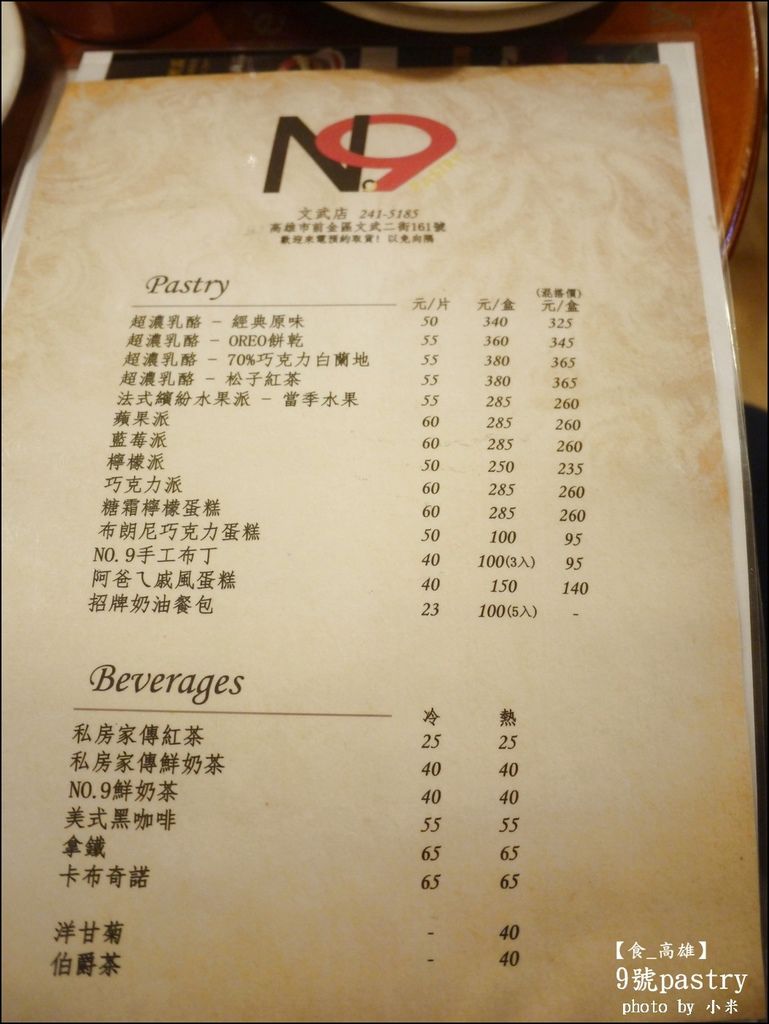 N.9
文武店 241-5185
高雄市前金區文武二街161號
歡迎來電預約取貨! 以免向隅
Pastry 元/片 元/盒 (混搭價)元/盒
超濃乳酪 - 經典原味 50 340 325
超濃乳酪 - OREO餅乾 55 360 345
超濃乳酪 - 70%巧克力白蘭地 55 380 365
超濃乳酪 - 松子紅茶 55 380 365
法式繽紛水果派 - 當季水果 55 285 260
蘋果派 60 285 260
藍莓派 60 285 260
檸檬派 50 250 235
巧克力派 60 285 260
糖霜檸檬蛋糕 60 285 260
布朗尼巧克力蛋糕 50 100 95
NO.9手工布丁 40 100(3入) 95
阿爸ㄟ戚風蛋糕 40 150 140
招牌奶油餐包 23 100(5入) -
Beverages 冷 熱
私房家傳紅茶 25 25
私房家傳鮮奶茶 40 40
NO.9鮮奶茶 40 40
美式黑咖啡 55 55
拿鐵 65 65
卡布奇諾 65 65
洋甘菊 - 40
伯爵茶 - 40
【食_高雄】
9號pastry
photo by 小米